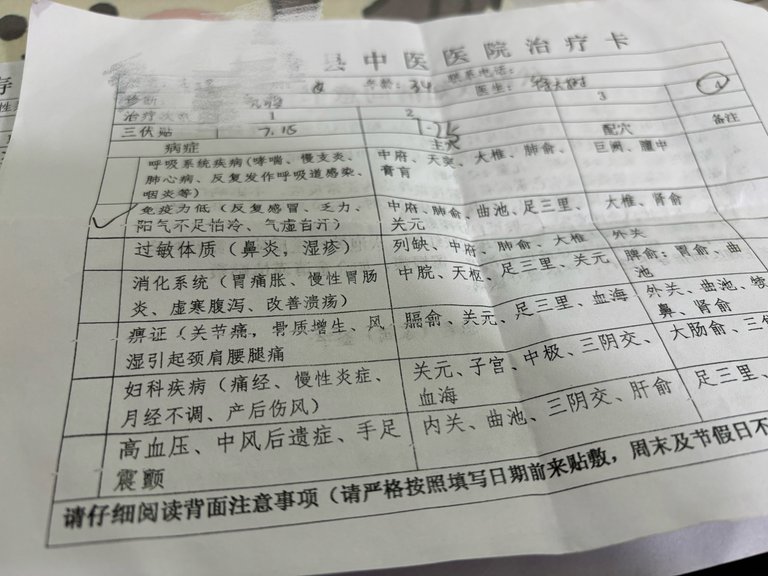 县中医医院治疗卡
年龄：34 联系电话：
诊断 医生：
治疗次数 1 2 3 4
三伏贴 7.15 7.25
病症 主穴 配穴 备注
呼吸系统疾病（哮喘、慢支炎、 中府、天突、大椎、肺俞、 巨阙、膻中
肺心病、反复发作呼吸道感染、 膏肓
咽炎等）
免疫力低（反复感冒、乏力、 中府、肺俞、曲池、足三里、 大椎、肾俞
阳气不足怕冷、气虚自汗） 关元
过敏体质（鼻炎，湿疹） 列缺、中府、肺俞、大椎 外关
消化系统（胃痛胀、慢性胃肠 中脘、天枢、足三里、关元 脾俞；胃俞、曲
炎、虚寒腹泻、改善溃疡） 池
痹证（关节痛，骨质增生、风 膈俞、关元、足三里、血海 外关、曲池、犊
湿引起颈肩腰腿痛 鼻、肾俞
妇科疾病（痛经、慢性炎症、 关元、子宫、中极、三阴交、 大肠俞、三
月经不调、产后伤风） 血海
高血压、中风后遗症、手足 内关、曲池、三阴交、肝俞 足三里、
震颤
请仔细阅读背面注意事项（请严格按照填写日期前来贴敷，周末及节假日不